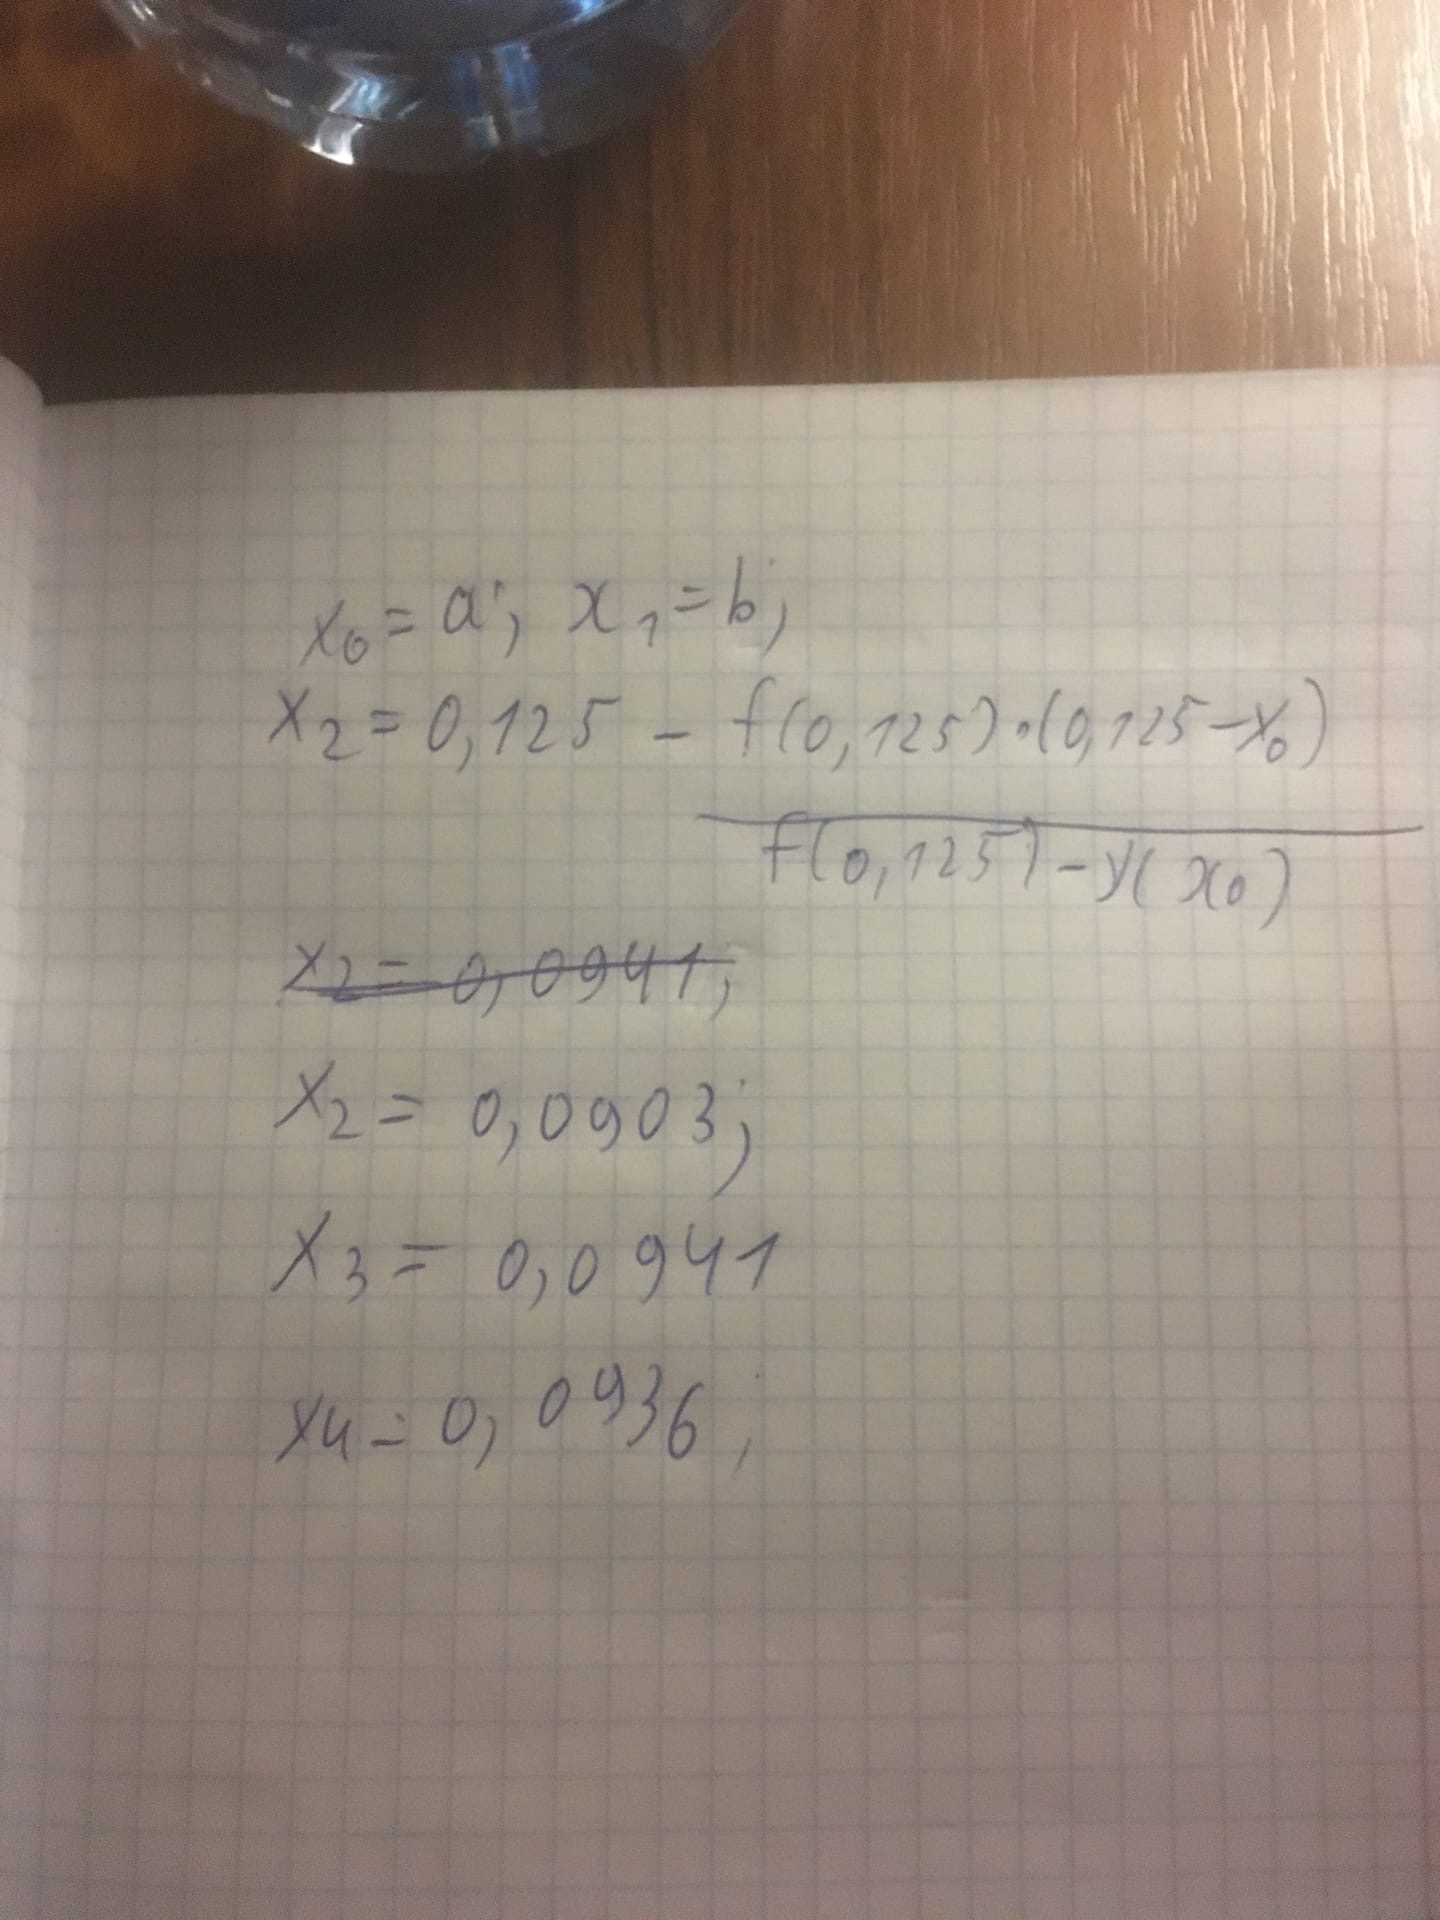 x₀ = a; x₁ = b;
x₂ = 0,125 - f(0,125)·(0,125-x₀)
f(0,125) - y(x₀)
x₂ = 0,0941;
x₂ = 0,0903;
x₃ = 0,0941
x₄ = 0,0936;